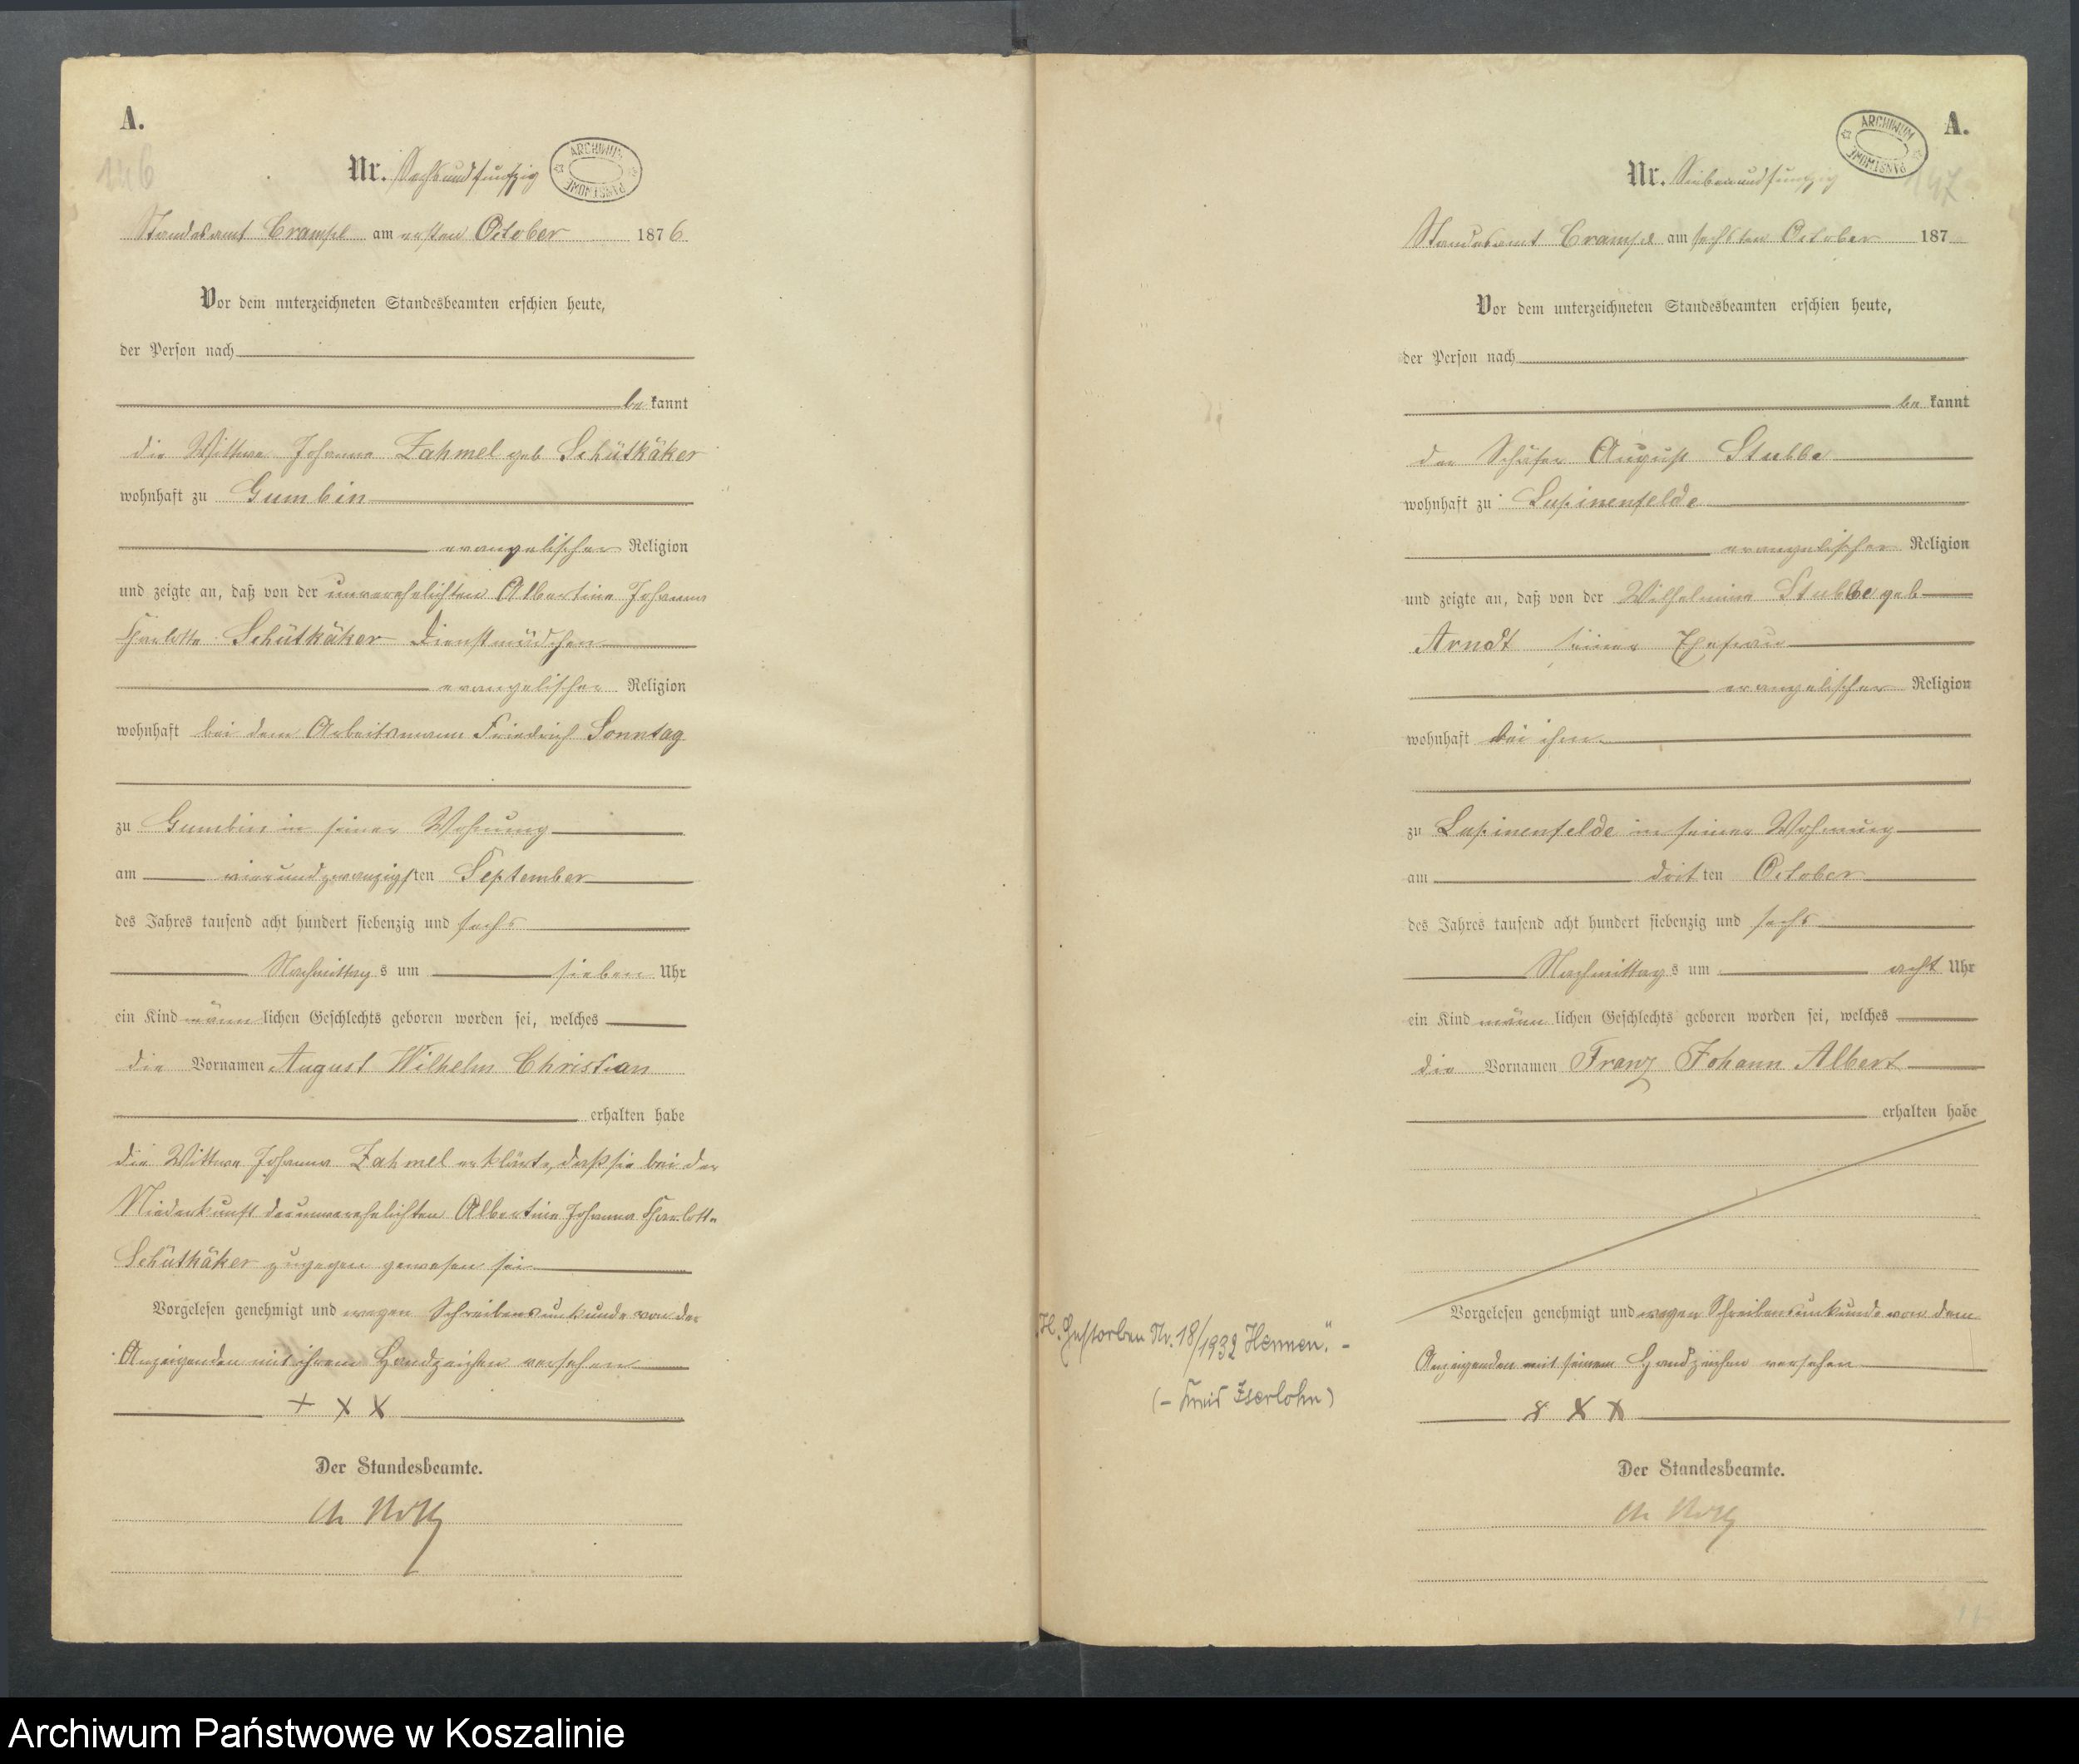 A.
146
Nr. Sechsundfunfzig
ARCHIWUM PAŃSTWOWE
Standesamt Crampe am ersten October 1876
Vor dem unterzeichneten Standesbeamten erschien heute,
der Person nach
bekannt
die Wittwe Johanna Zahmel geb Schütkäker
wohnhaft zu Gumbin
evangelischer Religion
und zeigte an, daß von der unverehelichten Albertine Johanna
Charlotte Schütkäker Dienstmädchen
evangelischer Religion
wohnhaft bei dem Arbeitsmann Friedrich Sonntag
zu Gumbin in seiner Wohnung
am vierundzwanzigsten September
des Jahres tausend acht hundert siebenzig und sechs
Nachmittags um sieben Uhr
ein Kind männlichen Geschlechts geboren worden sei, welches
die Vornamen August Wilhelm Christian
erhalten habe
die Wittwe Johanna Zahmel erklärte, daß sie bei der
Niederkunft der unverehelichten Albertine Johanna Charlotte
Schütkäker zugegen gewesen sei
Vorgelesen genehmigt und wegen Schreibensunkunde von der
Anzeigenden mit ihrem Handzeichen versehen
+ x x
Der Standesbeamte.
A.
147
Nr. Siebenundfunfzig
ARCHIWUM PAŃSTWOWE
Standesamt Crampe am sechsten October 187
Vor dem unterzeichneten Standesbeamten erschien heute,
der Person nach
bekannt
der Schäfer August Stubbe
wohnhaft zu Lupinenfelde
evangelischer Religion
und zeigte an, daß von der Wilhelmine Stubbe geb
Arndt seiner Ehefrau
evangelischer Religion
wohnhaft bei ihm
zu Lupinenfelde in seiner Wohnung
am dritten October
des Jahres tausend acht hundert siebenzig und sechs
Nachmittags um acht Uhr
ein Kind männlichen Geschlechts geboren worden sei, welches
die Vornamen Franz Johann Albert
erhalten habe
Vorgelesen genehmigt und wegen Schreibensunkunde von dem
Anzeigenden mit seinem Handzeichen versehen
x x x
Der Standesbeamte.
Gestorben Nr. 18/1932 Hennen". -
(- Kreis Iserlohn)
Archiwum Państwowe w Koszalinie